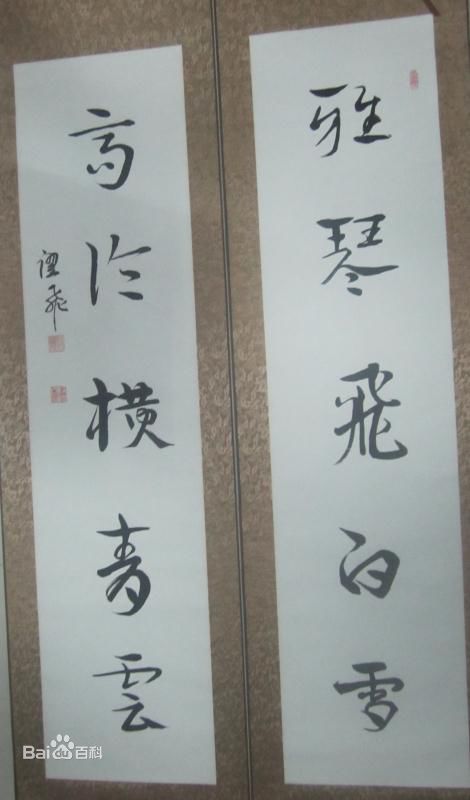 雅琴飛白雪
高论横青雲
Baidu百科